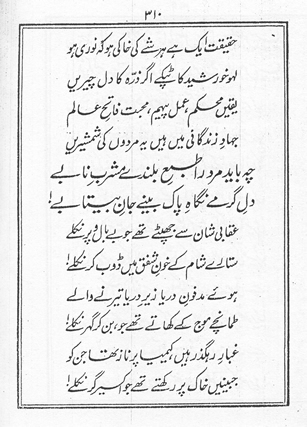 ۳۱۰
حقیقت ایک ہے ہر شے کی خاکی ہو کہ نوری ہو
لہو خورشید کا ٹپکے اگر ذرّہ کا دل چیریں
یقیں محکم، عمل پیہم، محبت فاتحِ عالم
جہادِ زندگانی میں ہیں یہ مردوں کی شمشیریں
چہ باید مرد را طبعِ بلندے مشربِ نابے
دلِ گرمے نگاہِ پاک بینے جانِ بیتابے!
عقابی شان سے جھپٹے تھے جو بے بال و پر نکلے
ستارے شام کے خونِ شفق میں ڈوب کر نکلے!
ہوئے مدفونِ دریا زیرِ دریا تیرنے والے
طمانچے موج کے کھاتے تھے جو، بن کر گہر نکلے!
غبارِ رہگذر ہیں، کیمیا پر ناز تھا جن کو
جبینیں خاک پر رکھتے تھے جو اکسیر گر نکلے!